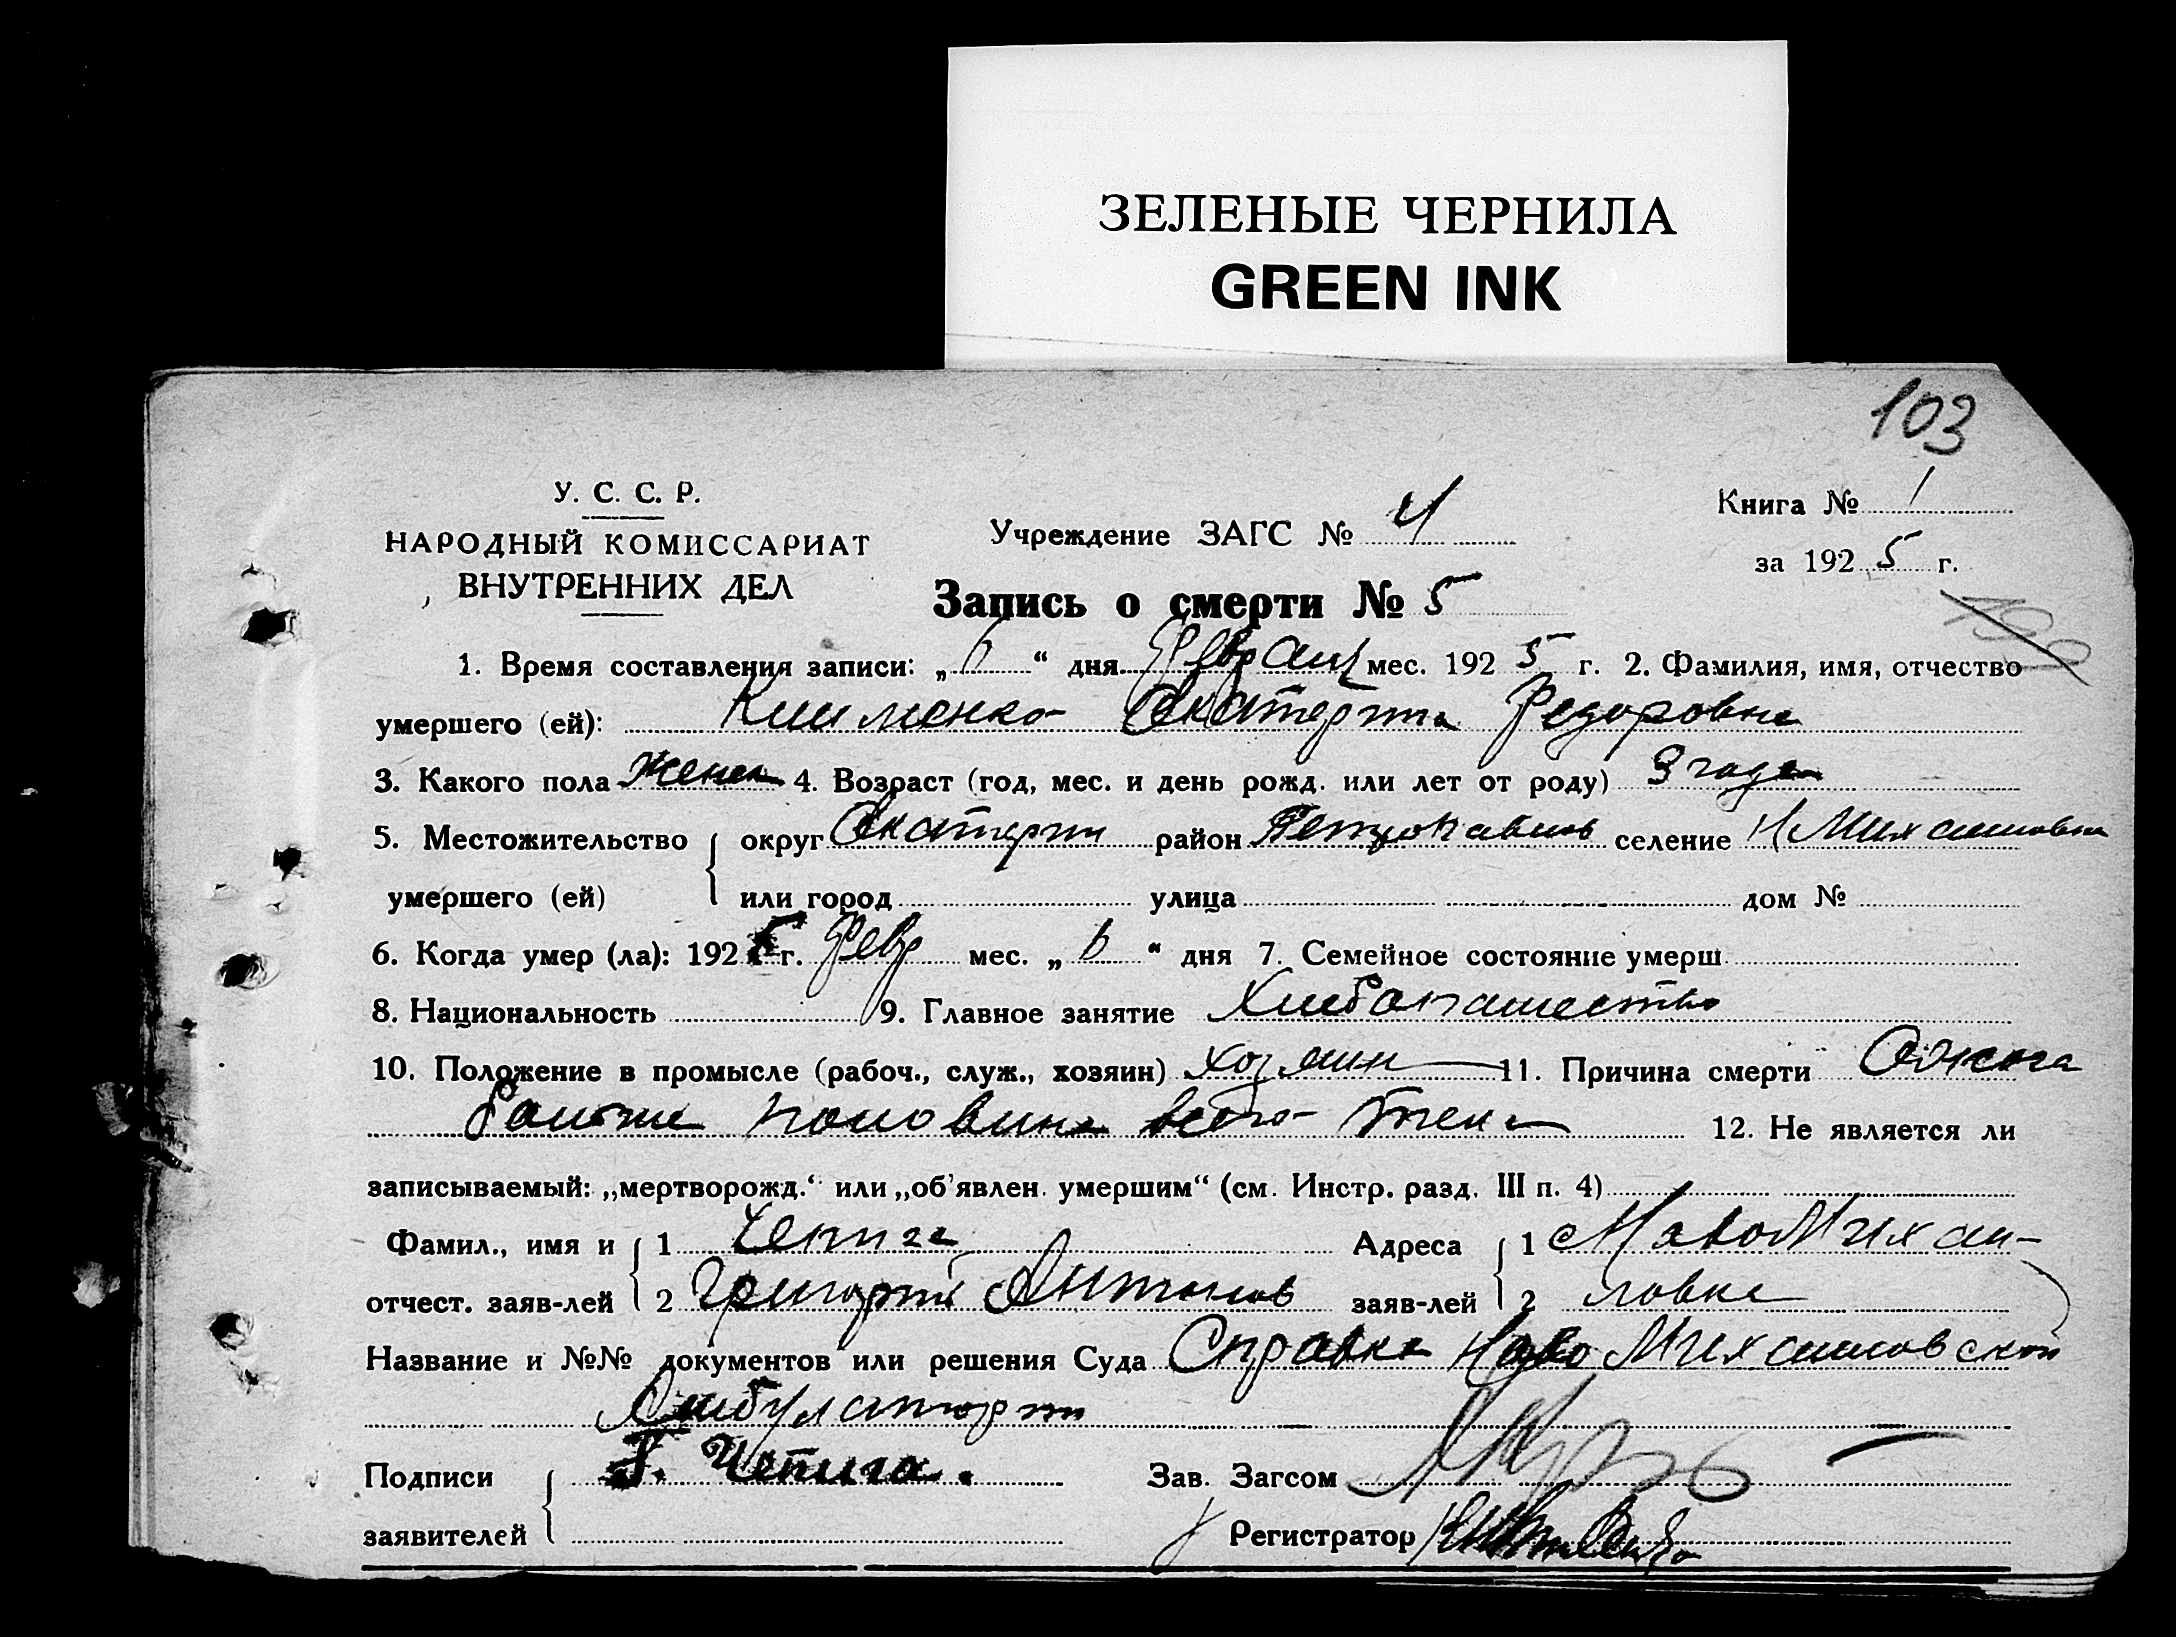 ЗЕЛЕНЫЕ ЧЕРНИЛА
GREEN INK
103
У. С. С. Р.
НАРОДНЫЙ КОМИССАРИАТ
ВНУТРЕННИХ ДЕЛ
Учреждение ЗАГС № 4
Книга № 1
за 1925 г.
Запись о смерти № 5
1. Время составления записи: „6“ дня Февраля мес. 1925 г. 2. Фамилия, имя, отчество
умершего (ей): Клименко Екатерина Федоровна
3. Какого пола женск 4. Возраст (год, мес. и день рожд. или лет от роду) 3 года
5. Местожительство округ Екатерин район Петропавлов селение Н Михайловка
умершего (ей) или город улица дом №
6. Когда умер (ла): 1925 г. Февр мес. „6“ дня 7. Семейное состояние умерш.
8. Национальность 9. Главное занятие Хлебопашество
10. Положение в промысле (рабоч., служ., хозяин) хозяин 11. Причина смерти Ожога
больше половина всего тела 12. Не является ли
записываемый: „мертворожд.“ или „об'явлен. умершим“ (см. Инстр. разд. III п. 4)
Фамил., имя и 1 Чепига Адреса 1 НовоМихай-
отчест. заяв-лей 2 Григорий Антонов заяв-лей 2 ловка
Название и №№ документов или решения Суда Справка Ново Михайловской
Амбулатории
Подписи Г. Чепига. Зав. Загсом
заявителей Регистратор